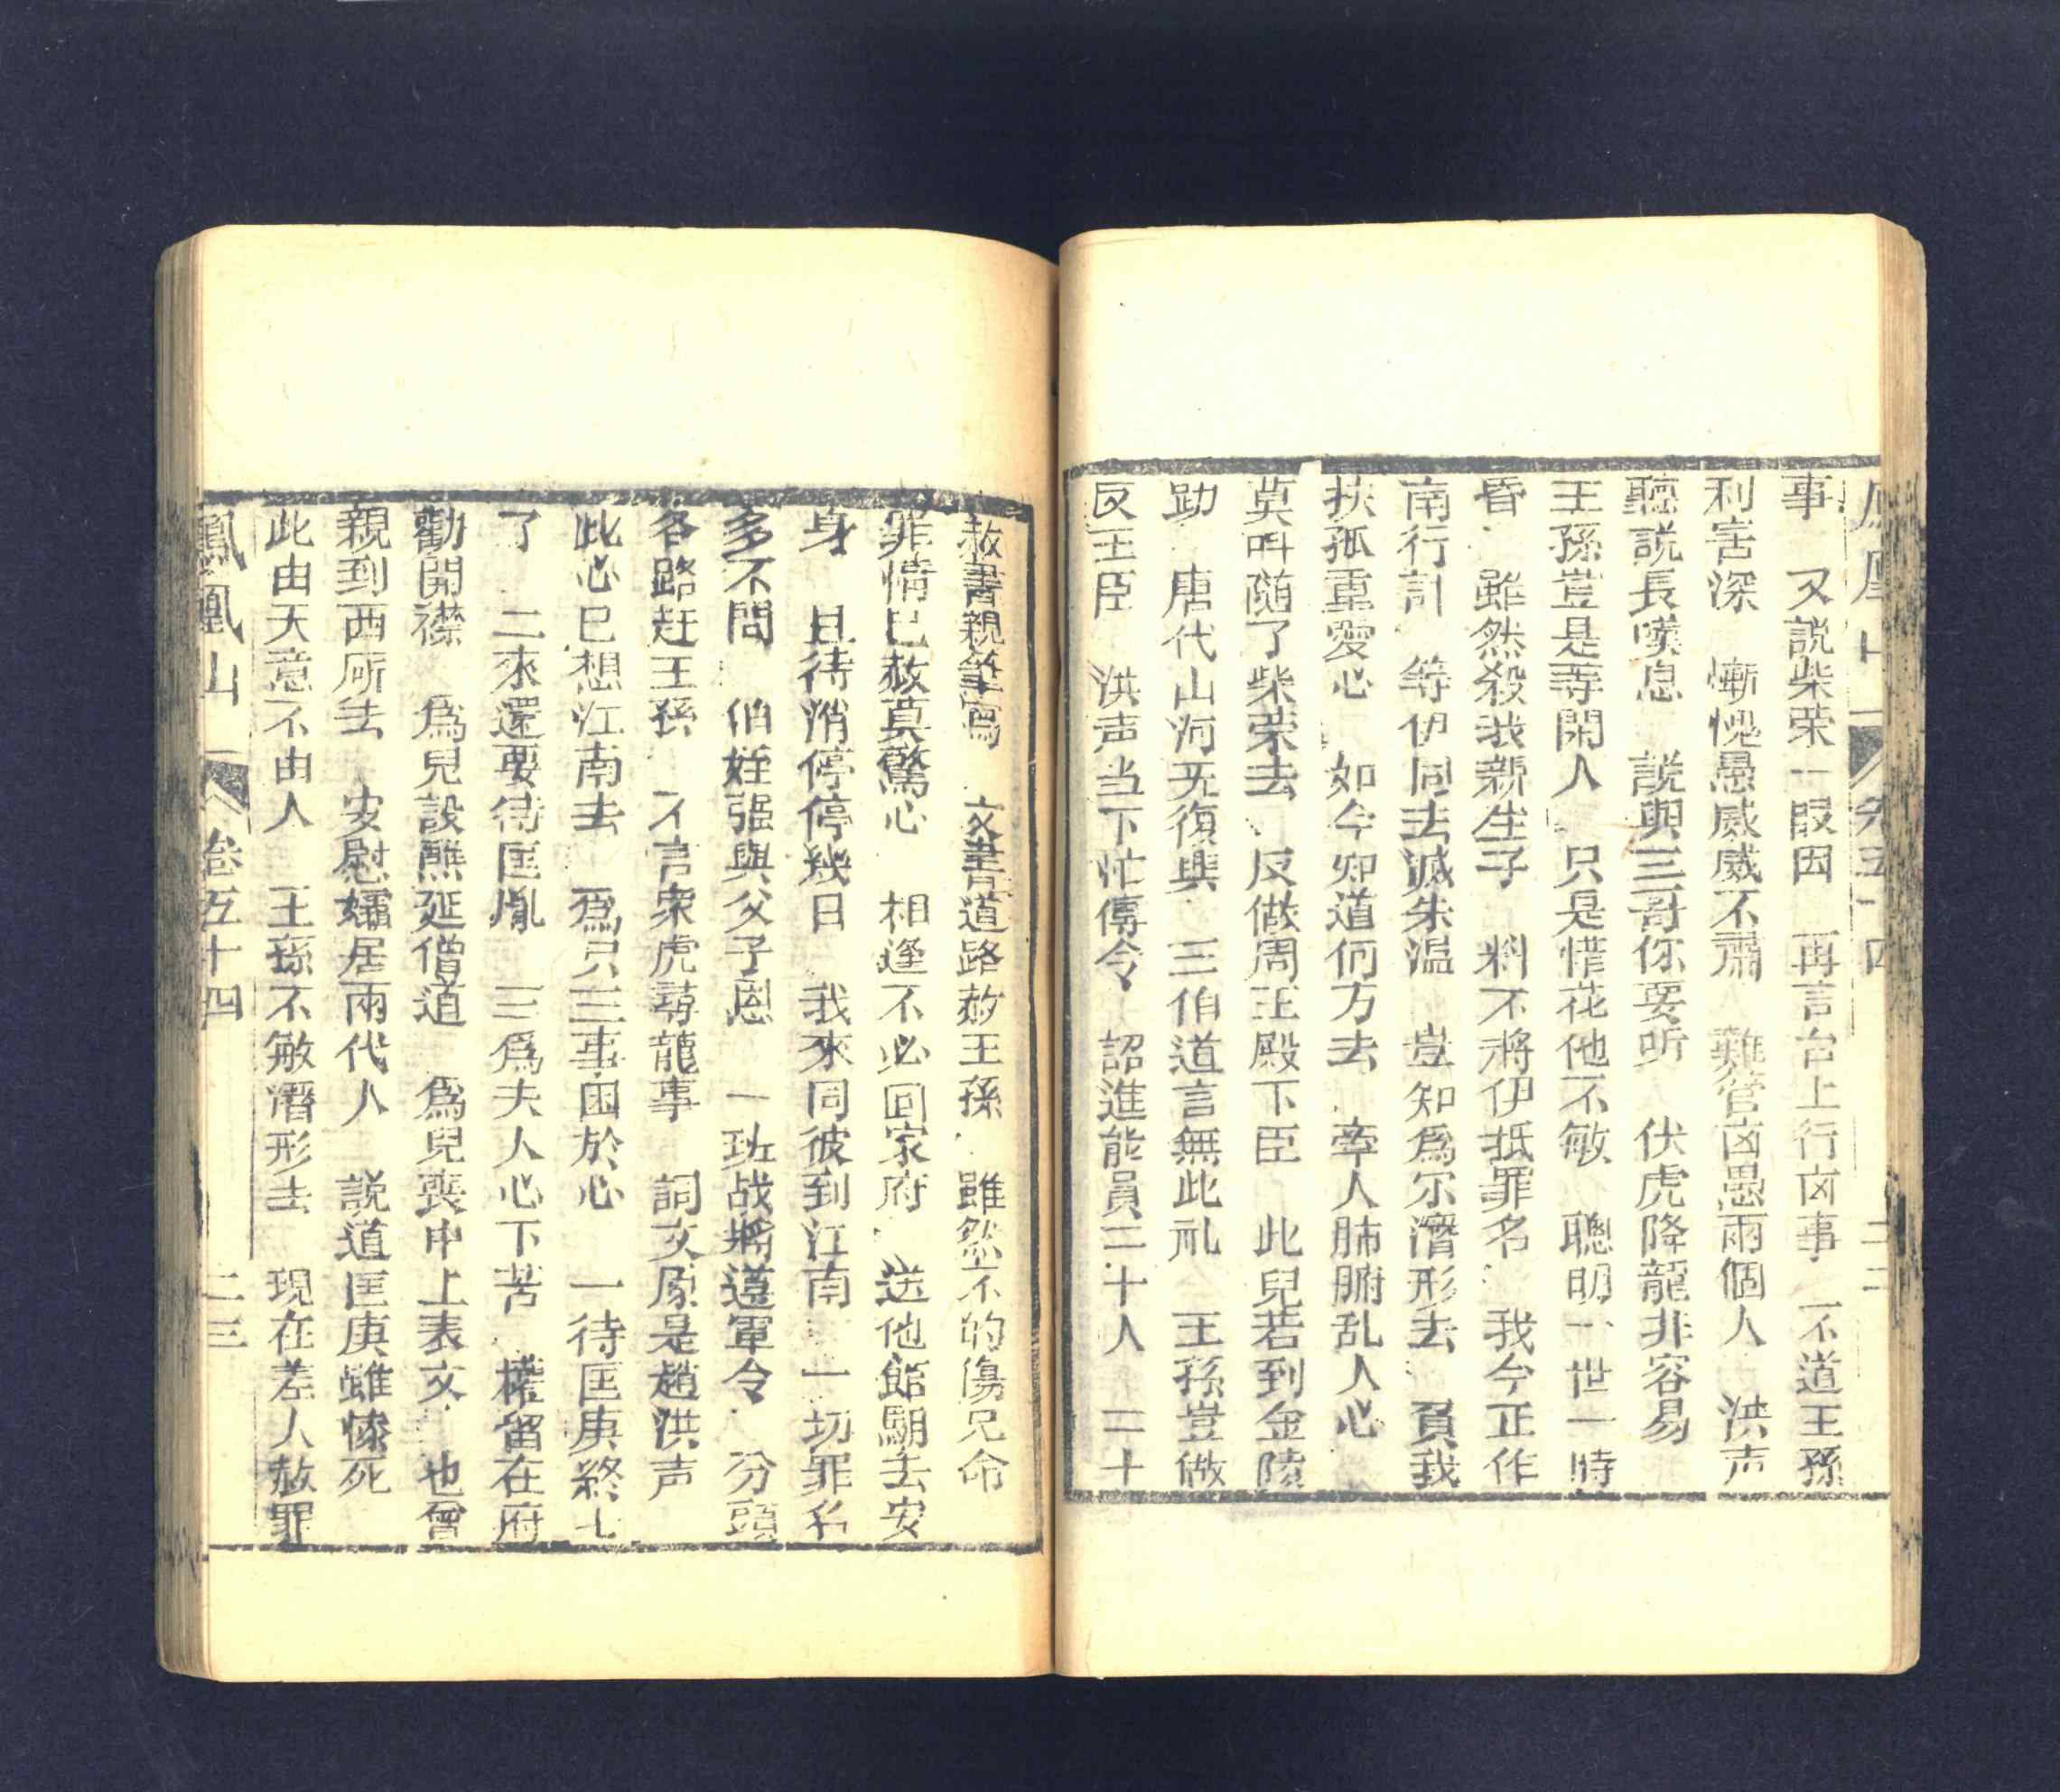 鳳凰山 卷五十四 二二
事 又説柴荣一段因 再言台上行凶事 不道王孫
利害深 慚愧愚威威不肅 難管凶愚兩個人 洪声
聽説長嘆息 説與三哥你要听 伏虎降龍非容易
王孫豈是等閑人 只是惜花他不敏 聰明一世一時
昏 雖然殺我親生子 料不將伊抵罪名 我今正作
南行計 等伊同去滅朱温 豈知爲尔潛形去 負我
扶孤重愛心 如今卿道何方去 牽人肺腑乱人心
莫叫随了柴荣去 反做周王殿下臣 此兒若到金陵
助 唐代山河死復興 三伯道言無此礼 王孫豈做
反王臣 洪声当下忙傳令 詔進能員二十人 二十
赦書親筆寫 文書道路赦王孫 雖然不的傷兄命
罪情已赦莫驚心 相逢不必回家府 送他館驛去安
身 且待消停停幾日 我來同彼到江南 一切罪名
多不問 伯姪强與父子恩 一班战將遵軍令 分頭
各路赶王孫 不言衆虎尋龍事 詞文原是趙洪声
此心已想江南去 爲只三事困於心 一待匡庚終七
了 二來還要待匡胤 三爲夫人心下苦 權留在府
勸開襟 爲兒設醮延僧道 爲兒喪申上表文 也曾
親到西厛去 安慰孀居兩代人 説道匡庚雖慘死
此由天意不由人 王孫不敏潛形去 現在差人赦罪
鳳凰山 卷五十四 二三